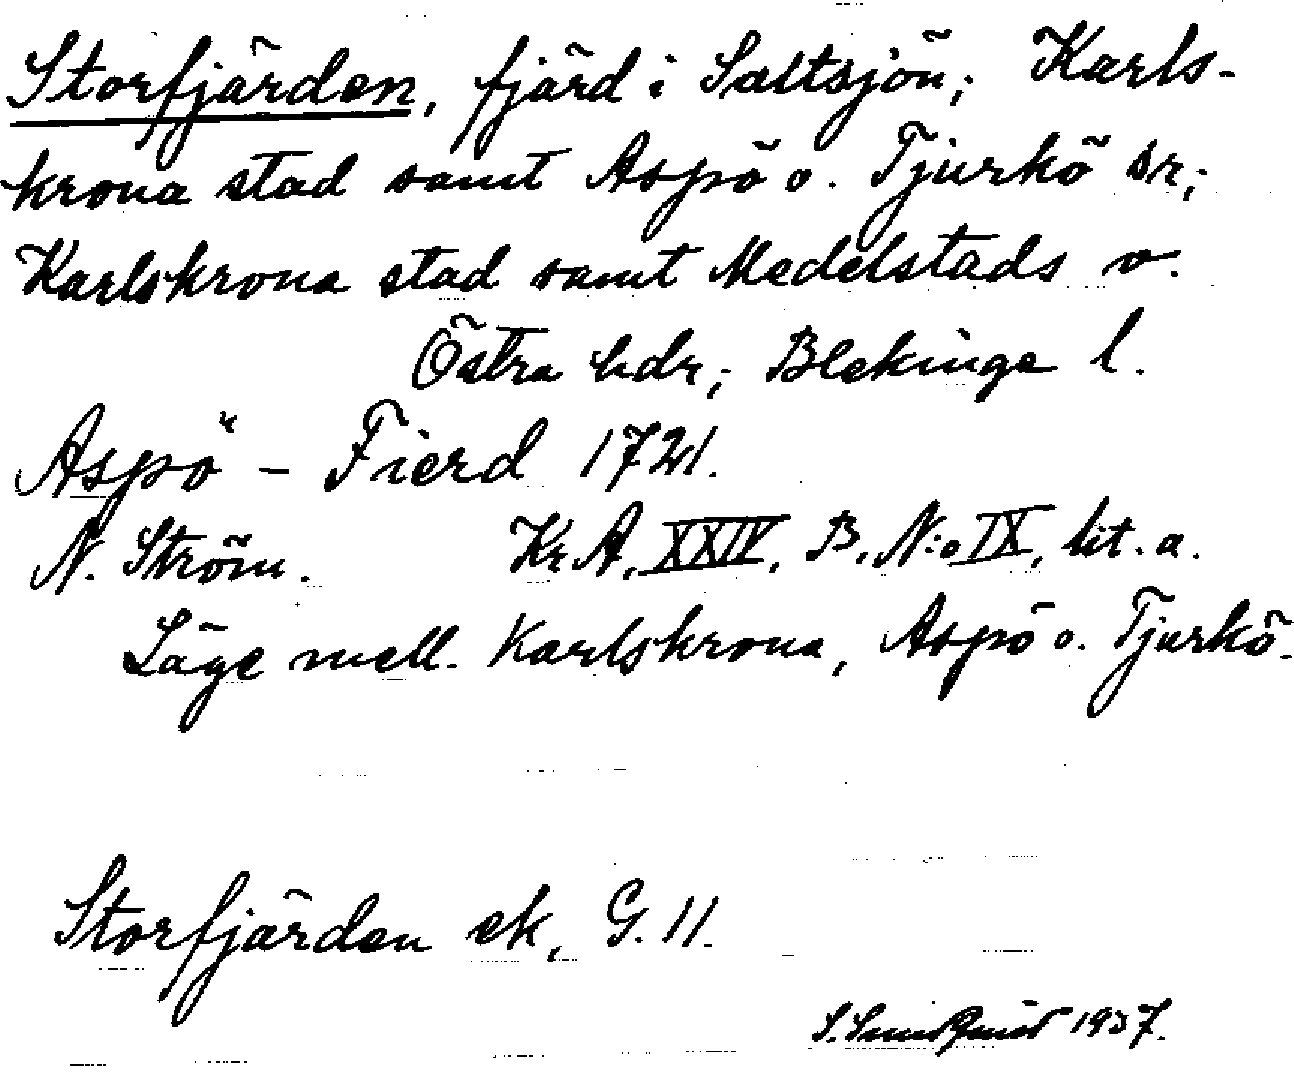 Storfjärden, fjärd i Saltsjön; Karls-
krona stad samt Aspö o. Tjurkö sr;
Karlskrona stad samt Medelstads o.
Östra hdr; Blekinge l.
Aspö - Fierd 1721.
N. Ström. Kr A, XXIV, B, N:o IX, lit. a.
Läge mell. Karlskrona, Aspö o. Tjurkö.
Storfjärden ek, G. 11.
S. 1937.